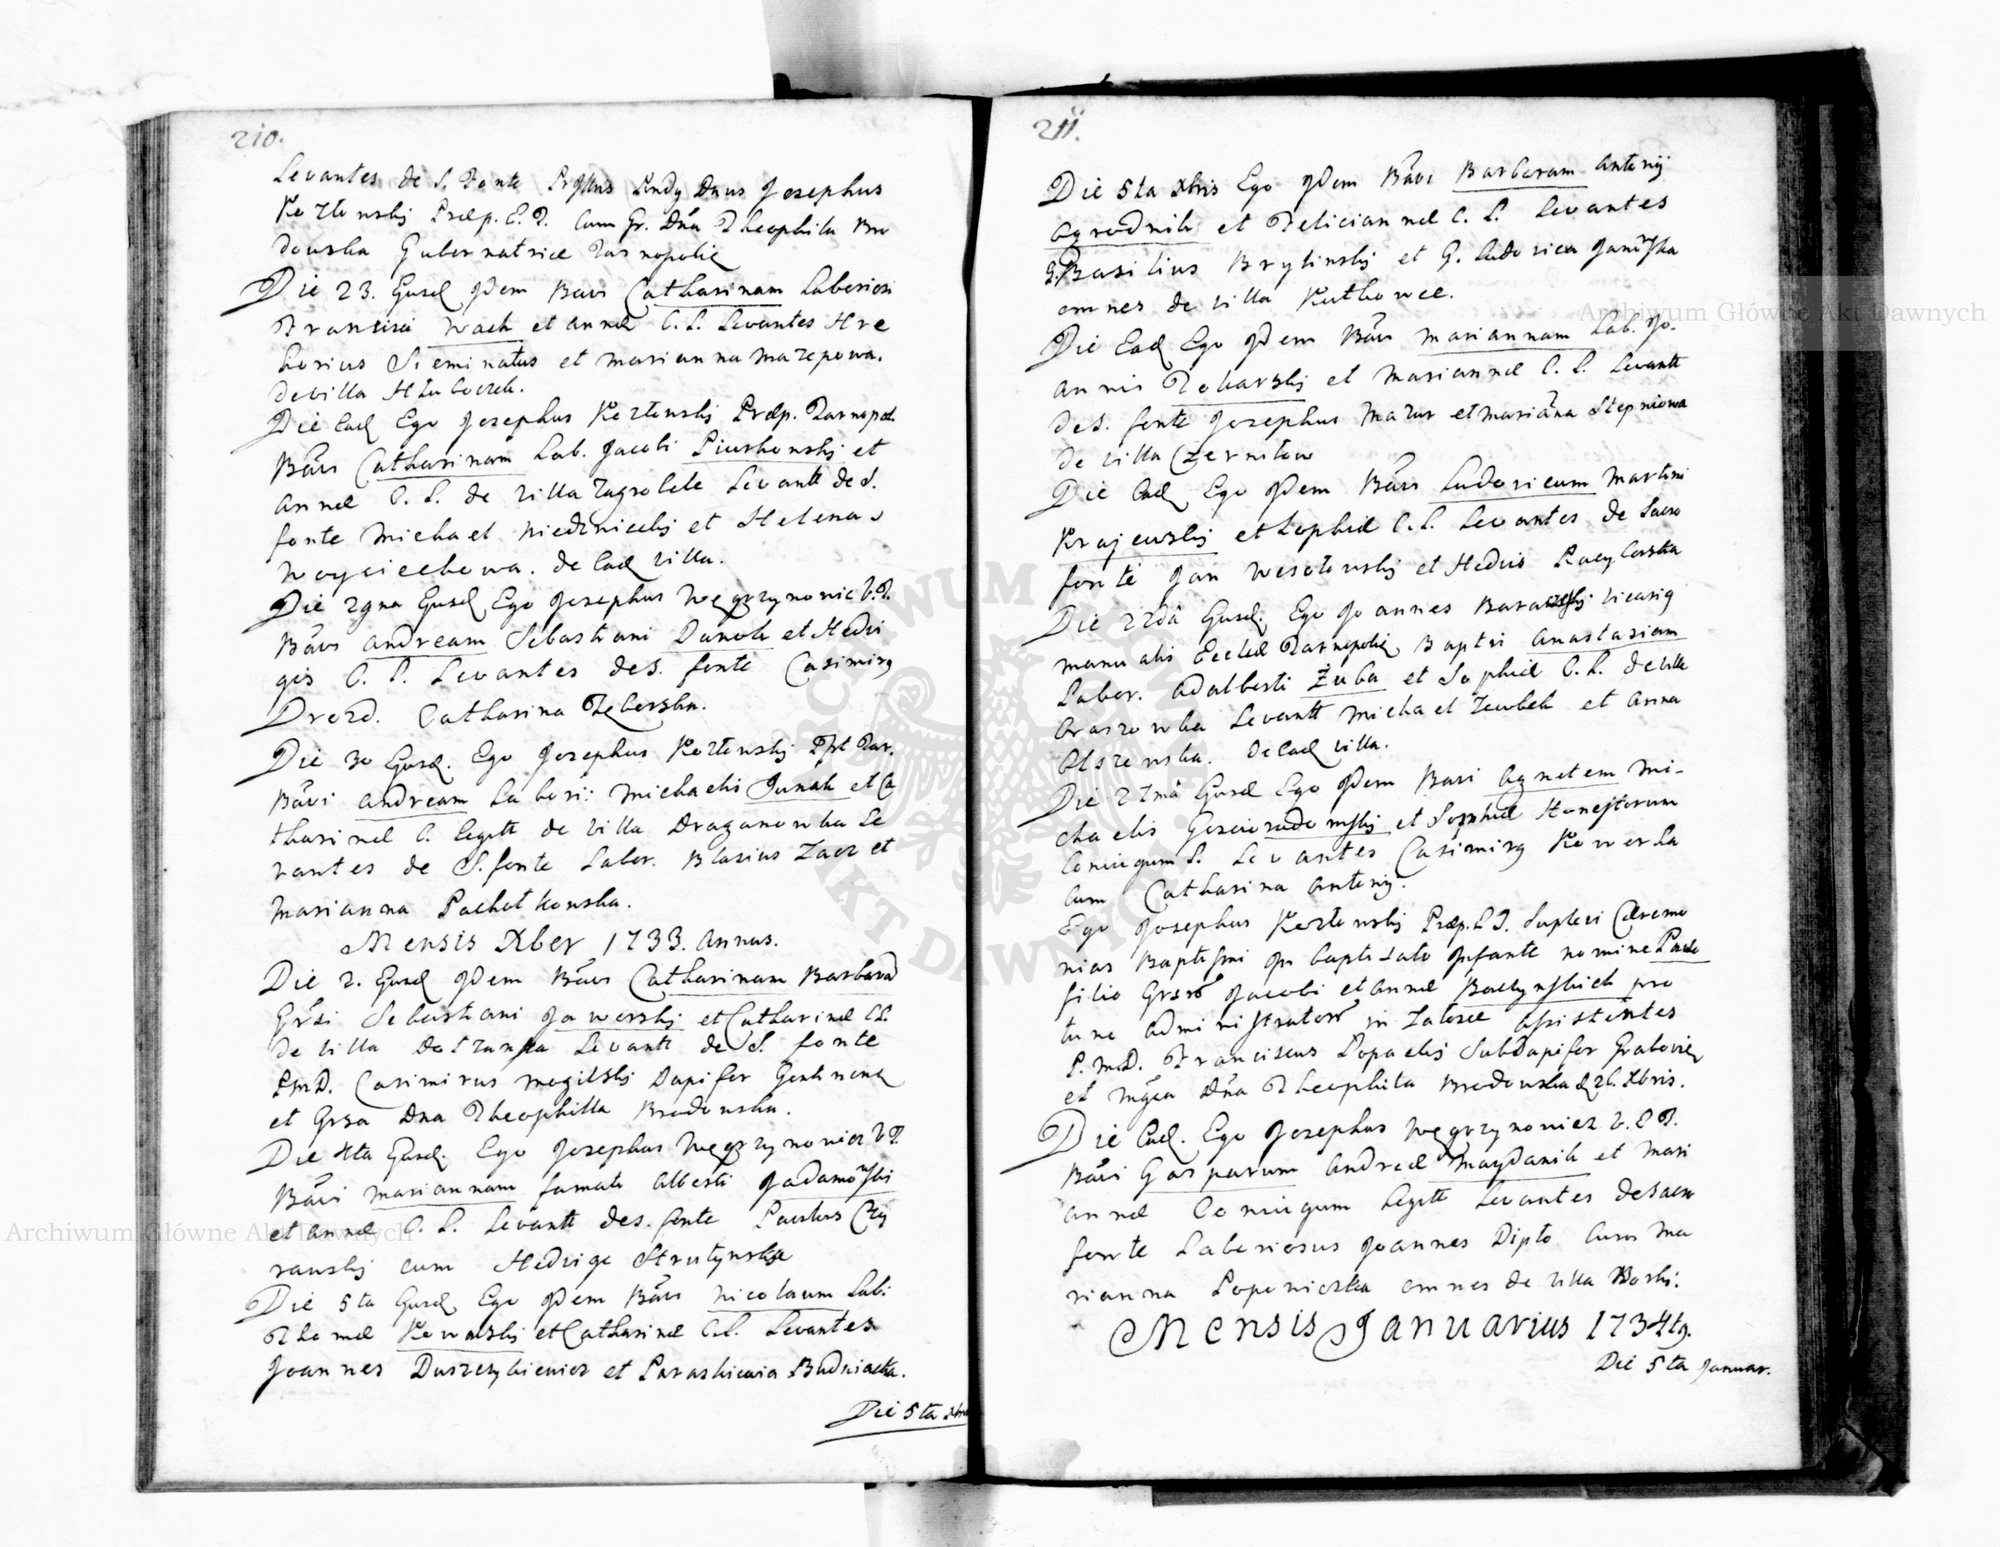 210.
Levantes de S. Fonte Dnus Josephus
Kozłowskij Præp. E. T. Cum Gr. Dña Theophila Bro
dowska Gubernatrice Tarnopoliē
Die 23. Eusd Idem Bavi Catharinam Laboriosi
Francisci Wach et Annæ C. L. Levantes Hre
horius Sieminatus et Marianna Mazepowa.
de villa Hłuboczek.
Die Ead Ego Josephus Kozłowskij Præp. Tarnopol.
Bãvi Catharinam Lab. Jacobi Piurkowskij et
Annæ C. L. de Villa Zagrobele Levantt de S.
fonte Michael Niedzwieckij et Helena
Woyciechowa. de Ead villa.
Die 29na Eusd Ego Josephus Węgrzynowic V. T.
Bãvi Andream Sebastiani Danoch et Hedvi
gis C. L. Levantes de S. fonte Casimirq
Drozd. Catharina Zeberska.
Die 30 Eusd. Ego Josephus Kozłowskij Ppt Tar.
Bãvi Andream Labori: Michaelis Junak et Ca
tharinæ C. Legitt de Villa Draganowka Le
vantes de S. fonte Labor. Blasius Zacz et
Marianna Pachotkowska.
Mensis Xber 1733. Annus.
Die 2. Eusd Idem Bãvi Catharinam Barbarā
Grsi Sebastiani Jaworskij et Catharinæ CL.
de villa Dołzanka Levantt de S. fonte
P.M.D. Casimirus Mogilskij Dapifer
et Grsa Dna Theophilla Brodowska.
Die 4ta Eusd. Ego Josephus Węgrzynowicz V. T.
Bãvi Mariannam famati Alberti Jadamowski
et Annæ C. L. Levantt de S. fonte Paulus Czy
rauskij cum Hedvige Strutynska
Die 5ta Eusd. Ego Idem Bãvi Nicolaum Labi
Thomæ Kowalskij et Catharinæ C.L. Levantes
Joannes Duszczykiewicz et Paraskiewia Budniaczka.
Die 5ta Xbris
211.
Die 5ta Xbris Ego Idem Bãvi Barbaram Antonij
Ogrodnik et Felicianæ C. L. Levantes
G. Basilius Brylinskij et G. Ludovica
omnes de villa Kutkowce.
Die Ead Ego Idem Bãvi Mariannam Lab. Jo.
annis Tokarskij et Mariannæ C. L. Levantt
de S. fonte Josephus Mazur et Mariãna Stepniowa
de villa Czerniłow
Die Ead Ego Idem Bãvi Ludovicum Martini
Krajewskij et Sophiæ C.L. Levantes de Sacro
fonte Jan Wesołowskij et Hedvis
Die 22dã Eusd. Ego Joannes vicariq
manualis Ecclæ Tarnopoliē Baptsi Anastasiam
Labor. Adalberti Zuba et Sophiæ C. L. de villa
Levantt Michael et Anna
Olszewska. de Ead villa.
Die 27mã Eusd Ego Idem Bavi Agnetem Mi-
chaelis et Sophiæ Honestorum
Coniugum L. Levantes Casimirq Kowerka
cum Catharina Antonij.
Ego Josephus Kozłowskij Præp. E T. Suplevi Cæremo
nias Baptismi in baptisato Infante nomine
filio Grsrõ Jacobi et Annæ pro
tunc Administratorũ in Założce Assistentes
P. M.D. Franciscus Popaelij Subdapifer Graboviē
et Mgca Dña Theophila Brodowska d 26. Xbris.
Die Ead. Ego Josephus Węgrzynowicz V. E T.
Bãvi Gasparum Andreæ Maydanik et Mari
annæ Coniugum Legitt Levantes de Sacro
fonte Laboriosus Joannes Dipto cum Ma
rianna Popowiczka omnes de villa Borki.
Mensis Januarius 1734tg.
Die 5ta Januar.
Archiwum Główne Akt Dawnych
Archiwum Główne Akt Dawnych
ARCHIWUM GŁÓWNE AKT DAWNYCH